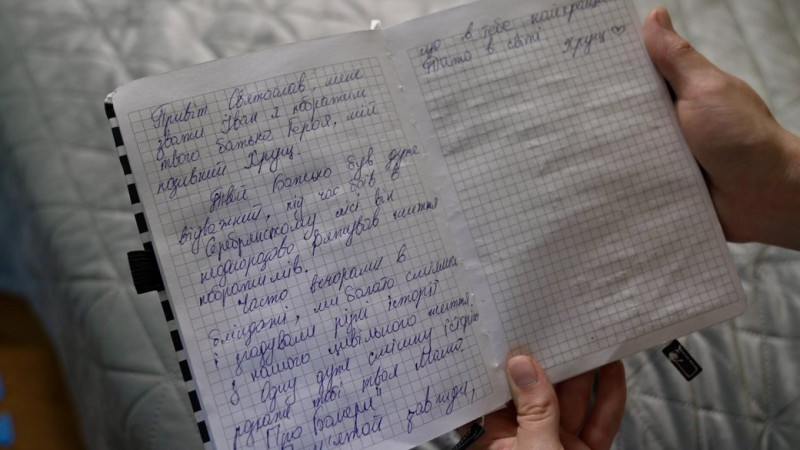 Привіт Святослав, мене
звати Іван я побратим
твого батька Героя, мій
позивний Хрущ.
Твій Батько був дуже
відважний, під час боїв в
Серебрянському лісі він
неодноразово рятував життя
побратимів.
Часто вечорами в
бліндажі, ми багато сміялися
і згадували різні історії
з нашого цивільного життя.
Одну дуже смішну історію
розкаже тобі твоя Мама.
"Про Болгарію"
завжди,
що в тебе найкращий
Тато в світі.
Хрущ ♡